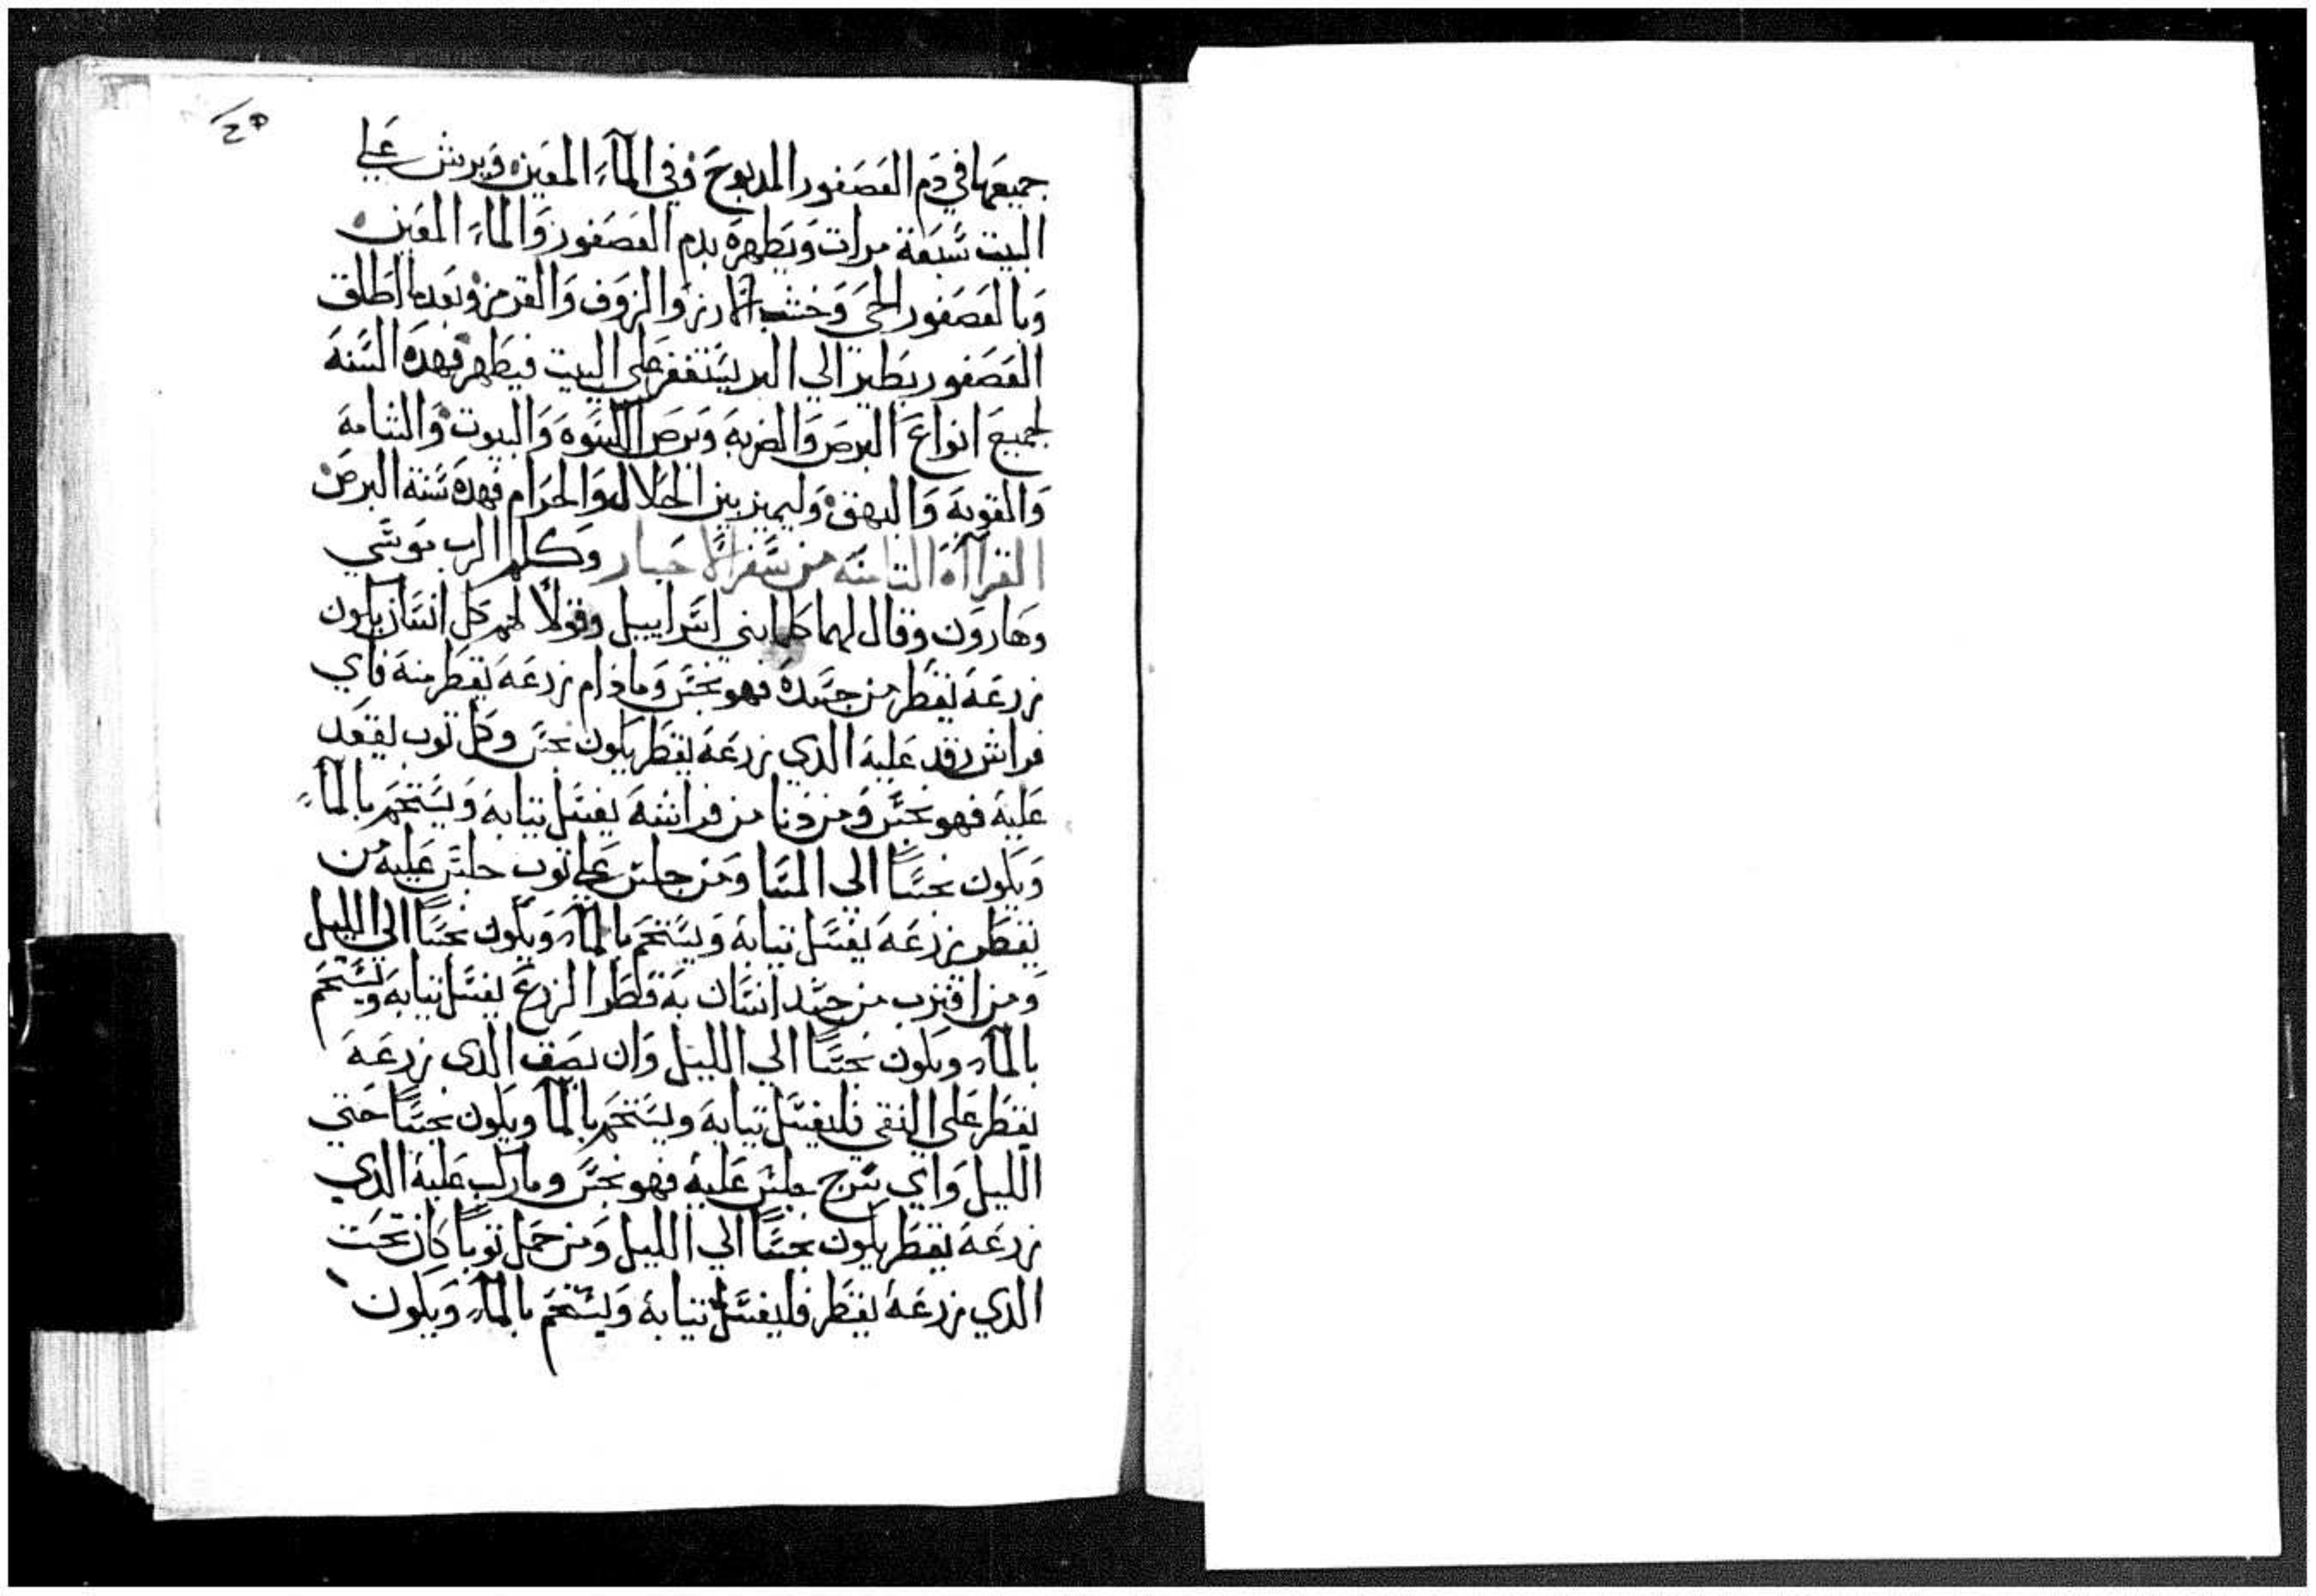 جميعها في دم العصفور المدبوح وفي المآء المعين ويرش علي
البيت سبعة مرات ويطهره بدم العصفور والماء المعين
وبالعصفور الحي وخشب الارز والزوف والقرمز وبعدها اطلق
العصفور يطير الي البر يستغفر علي البيت فيطهر فهده السنه
لجميع انواع البرص والضربه وبرص الكسوه والبيوت والشامه
والقوبه والبهق وليميز بين الحلال والحرام فهده سنة البرص
القراآه التامنه من سفر الاحبار وكلم الرب موسي
وهارون وقال لهما كلما بني اسراييل وقولا لهم كل انسان يكون
زرعه يقطر من جسده فهو نجس وما دام زرعه يقطر منه فاي
فراش رقد عليه الدي زرعه يقطر يكون نجس وكل توب يقعد
عليه فهو نجس ومن دنا من فراشه يغسل تيابه ويستحم بالمآء
ويكون نجساً الي المسا ومن جلس علي توب جلس عليه من
يقطر زرعه يغسل تيابه ويستحم بالمآء ويكون نجساً الي الليل
ومن اقترب من جسد انسان به قطر الزرع يغسل تيابه ويستحم
بالمآء ويكون نجساً الي الليل وان بصق الدي زرعه
يقطر علي النقي فليغسل تيابه ويستحم بالمآ ويكون نجساً حتي
الليل واي سرج جلس عليه فهو نجس وما ركب عليه الدي
زرعه يقطر يكون نجساً الي الليل ومن حمل توباً كان تحت
الدي زرعه يقطر فليغسل تيابه ويستحم بالمآء ويكون